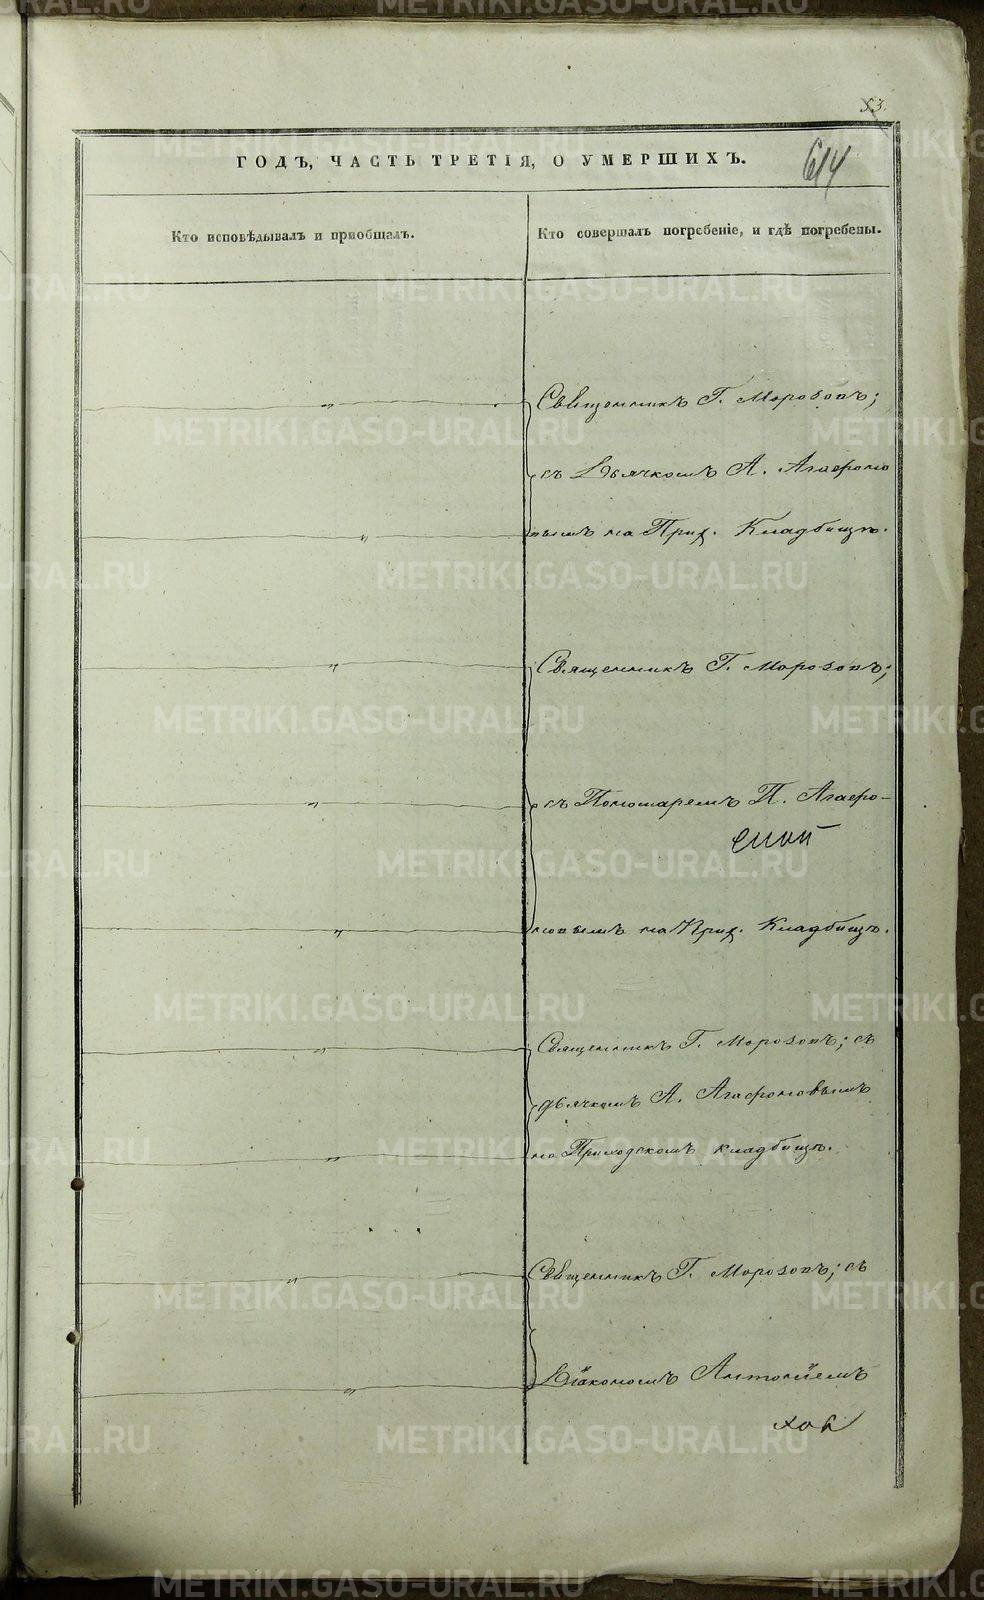 53.
614
ГОДЪ, ЧАСТЬ ТРЕТІЯ, О УМЕРШИХЪ.
Кто исповѣдывалъ и пріобщалъ.
Кто совершалъ погребеніе, и гдѣ погребены.
Священникъ Г. Морозовъ;
съ Дьячкомъ А. Агафоно
вымъ на Прих. Кладбищѣ.
Священникъ Г. Морозовъ;
съ Пономаремъ П. Агафо-
новымъ на Прих. Кладбищѣ.
Священникъ Г. Морозовъ; съ
дьячкомъ А. Агафоновымъ
на Приходскомъ кладбищѣ.
Священникъ Г. Морозовъ; съ
Діакономъ Антоніемъ
METRIKI.GASO-URAL.RU